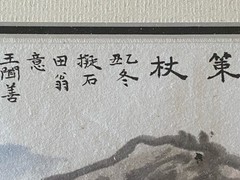 策
杖
乙丑冬
擬石
田翁
意
王 善